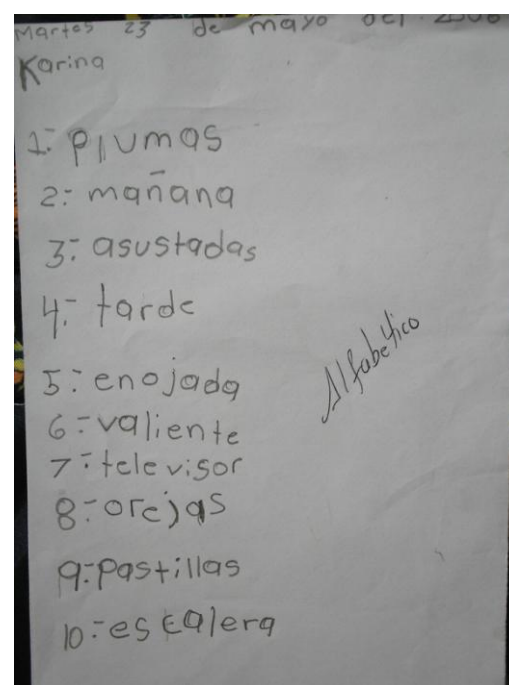 Martes 23 de mayo del 2006
Karina
1:- Plumas
2:- mañana
3:- asustadas
4:- tarde
5:- enojada
Alfabetico
6:- valiente
7:- televisor
8:- orejas
9:- Pastillas
10:- escalera